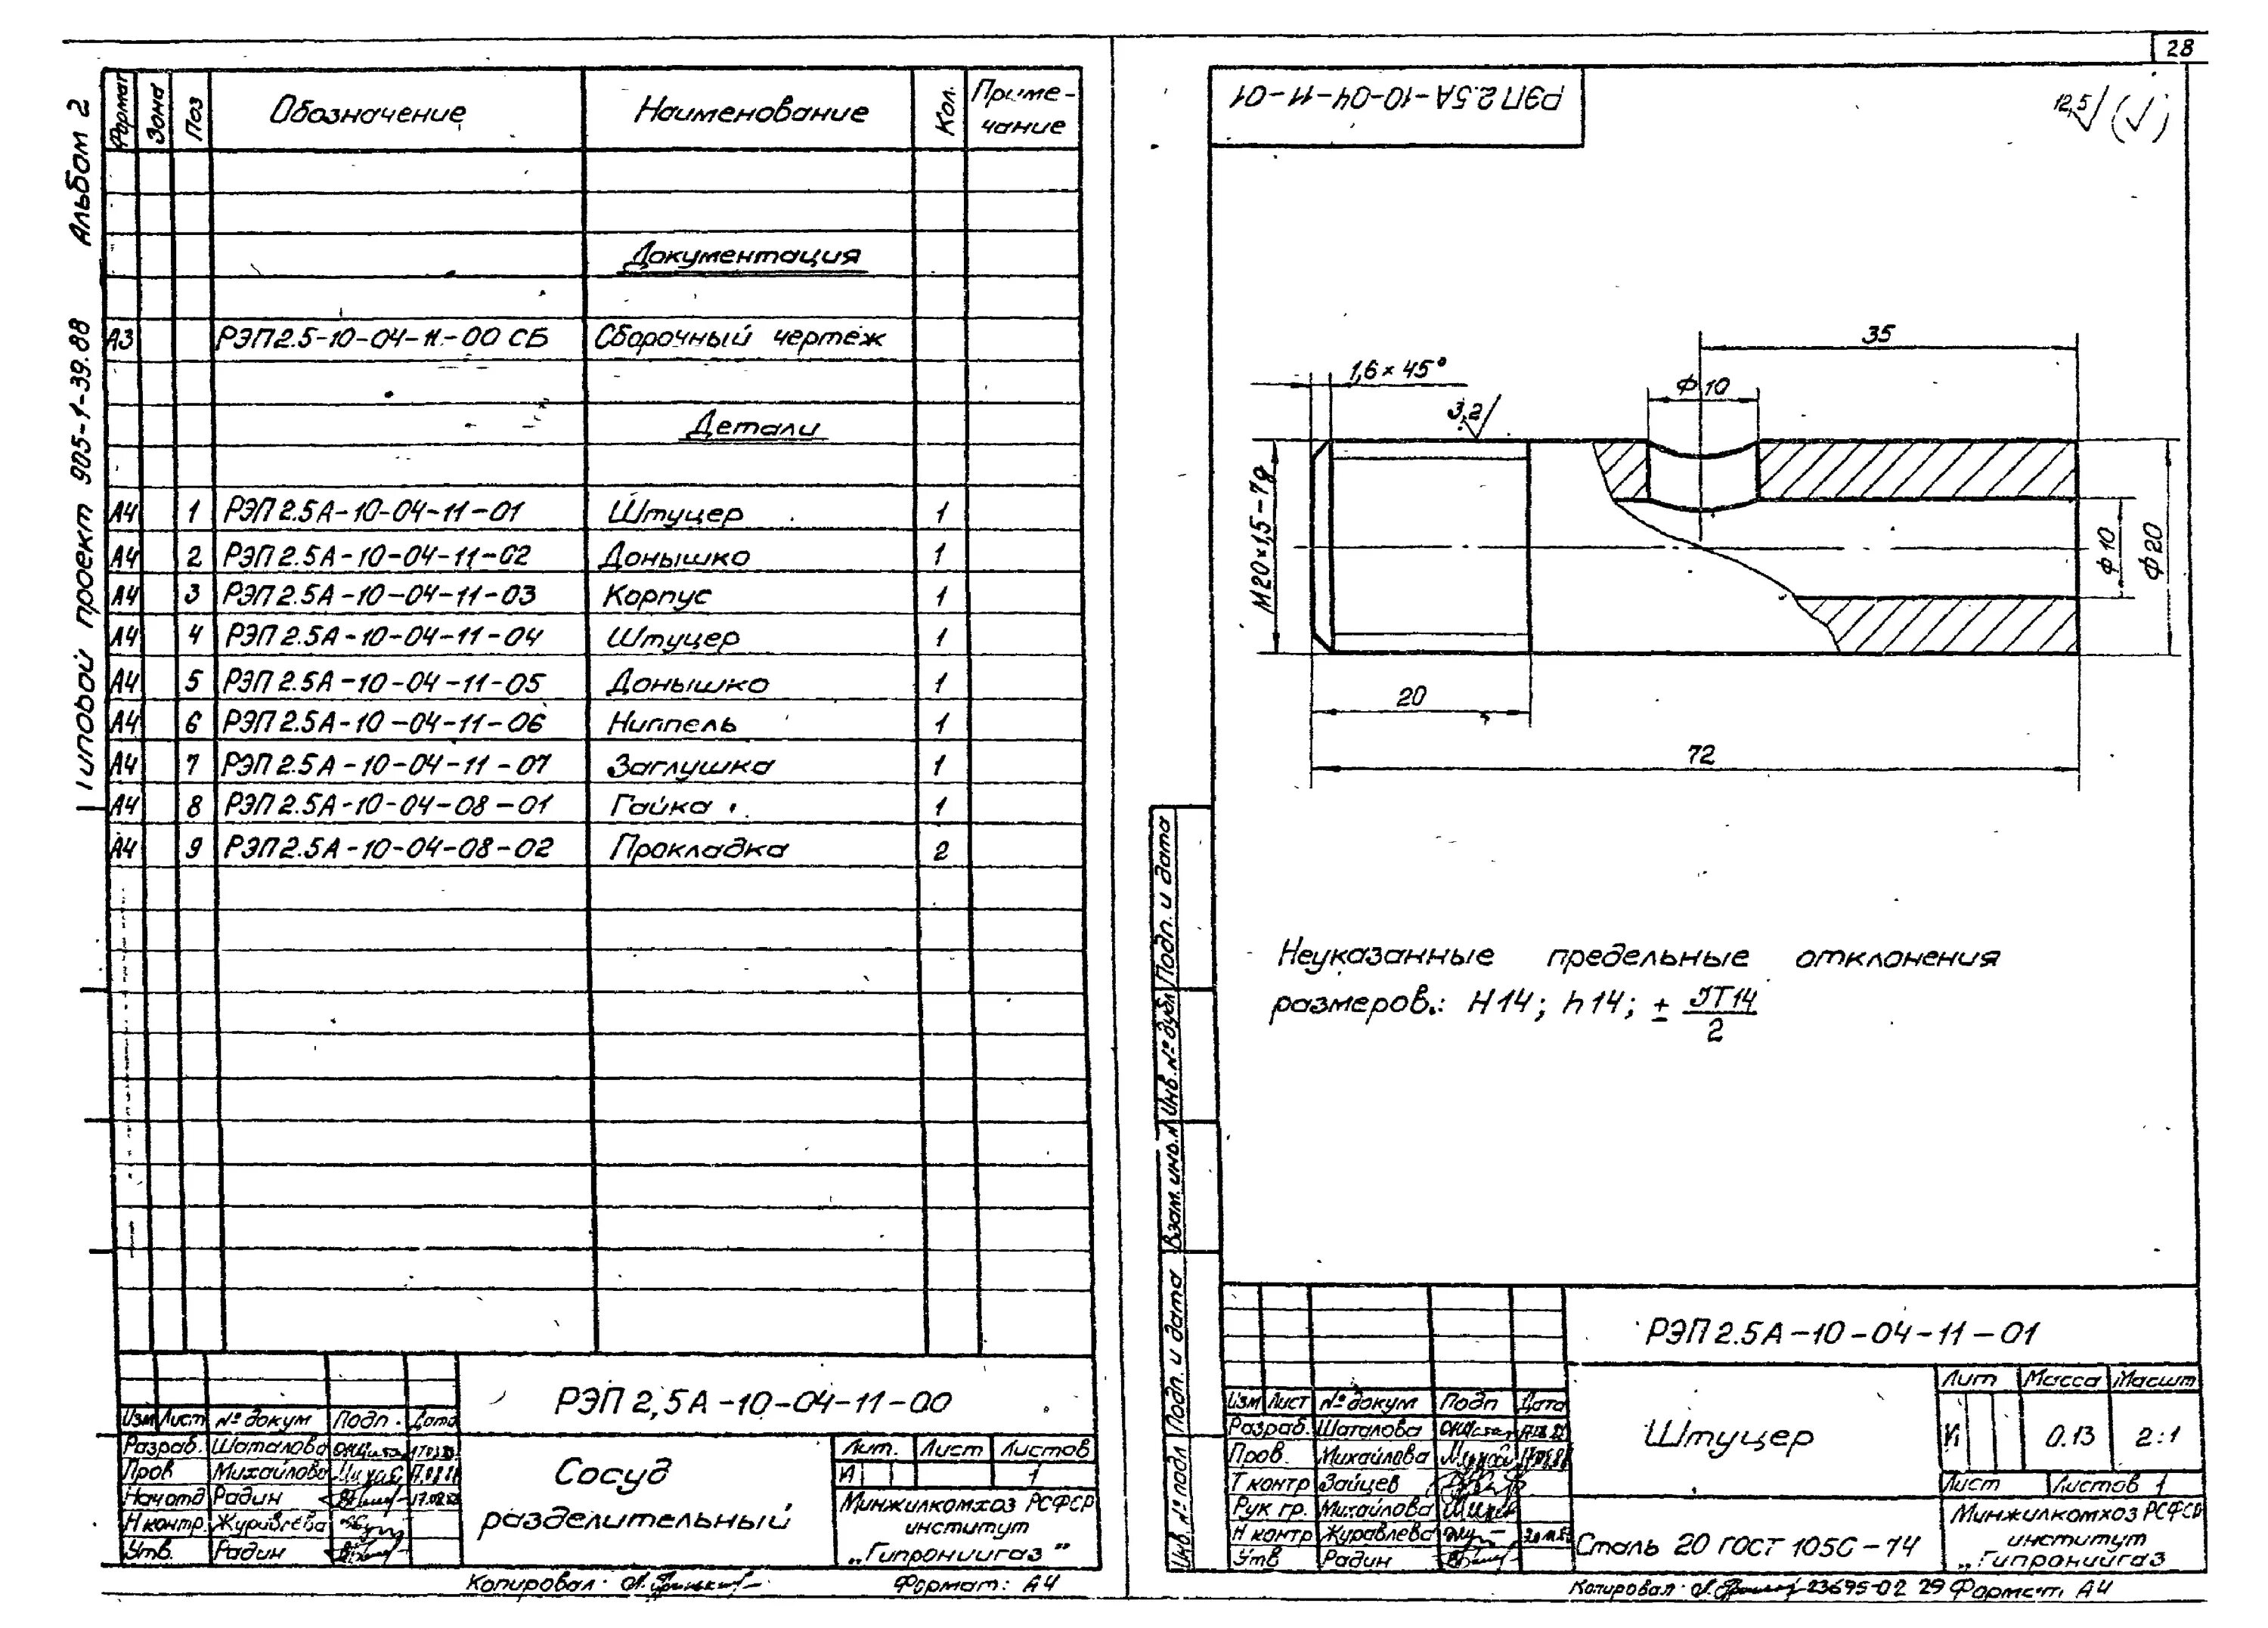 Альбом 2
Типовой проект 905-1-39.88
Формат Зона Поз Обозначение Наименование Кол. Приме-
чание
Документация
А3 РЭП2.5-10-04-11-00 СБ Сборочный чертёж
Детали
А4 1 РЭП 2.5А-10-04-11-01 Штуцер 1
А4 2 РЭП 2.5А-10-04-11-02 Донышко 1
А4 3 РЭП 2.5А-10-04-11-03 Корпус 1
А4 4 РЭП 2.5А-10-04-11-04 Штуцер 1
А4 5 РЭП 2.5А-10-04-11-05 Донышко 1
А4 6 РЭП 2.5А-10-04-11-06 Ниппель 1
А4 7 РЭП 2.5А-10-04-11-07 Заглушка 1
А4 8 РЭП 2.5А-10-04-08-01 Гайка 1
А4 9 РЭП 2.5А-10-04-08-02 Прокладка 2
РЭП 2,5А-10-04-11-00
Изм Лист № докум Подп. Дата
Разраб. Шаталова
Пров Михайлова
Нач отд Радин
Н контр. Журавлёва
Утв. Радин
Сосуд
разделительный
Лит. Лист Листов
И 1
Минжилкомхоз РСФСР
институт
„Гипрониигаз"
Копировал: Формат: А4
28
РЭП 2.5А-10-04-11-01
12,5 (√)
35
1,6×45°
Ф10
3,2
М20×1,5-7g
Ф10
Ф20
20
72
Неуказанные предельные отклонения
размеров: Н14; h14; ± IT14
2
Подп. и дата
Инв. № дубл
Взам. инв. №
Подп. и дата
Инв. № подл
РЭП 2.5А-10-04-11-01
Изм Лист № докум Подп Дата
Разраб. Шаталова
Пров. Михайлова
Т контр Зайцев
Рук гр. Михайлова
Н контр Журавлёва
Утв Радин
Штуцер
Лит Масса Масшт
И 0.13 2:1
Лист Листов 1
Сталь 20 ГОСТ 1050-74
Минжилкомхоз РСФСР
институт
„Гипрониигаз
Копировал: 23695-02 29 Формат А4